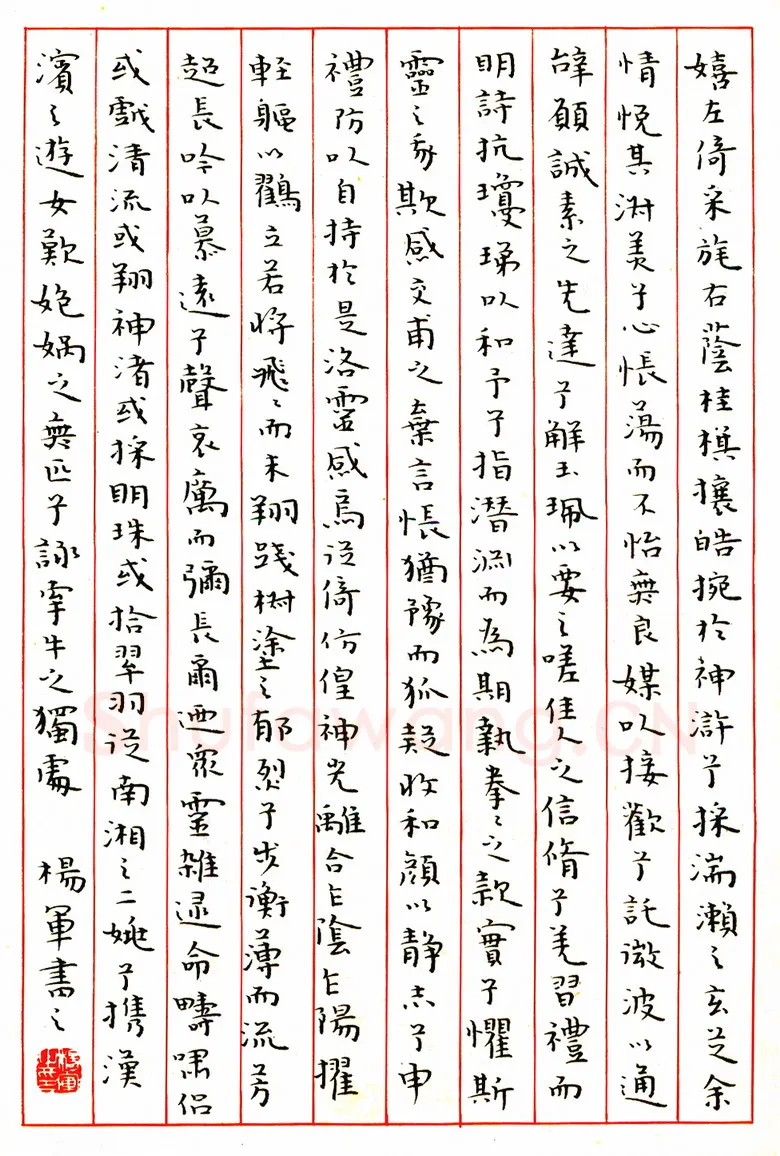 嬉左倚采旄右蔭桂棋攘皓捥於神滸兮採湍瀨之玄芝余
情悅其淑美兮心悵蕩而不怡無良媒以接歡兮託微波以通
辭願誠素之先達兮解玉珮以要之嗟佳人之信脩兮羌習禮而
明詩抗瓊珶以和予兮指潛淵而為期執拳〻之款實兮懼斯
靈之我欺感交甫之棄言悵猶豫而狐疑收和顏以靜志兮申
禮防以自持於是洛靈感焉徙倚仿偟神光離合乍陰乍陽擢
輕軀以鶴立若將飛〻而未翔踐椒塗之郁烈兮步蘅薄而流芳
超長吟以慕遠兮聲哀厲而彌長爾迺眾靈雜遝命疇嘯侶
或戲清流或翔神渚或採明珠或拾翠羽從南湘之二姚兮攜漢
濱之遊女歎匏媧之無匹兮詠牽牛之獨處 楊軍書之
Shufawang.CN